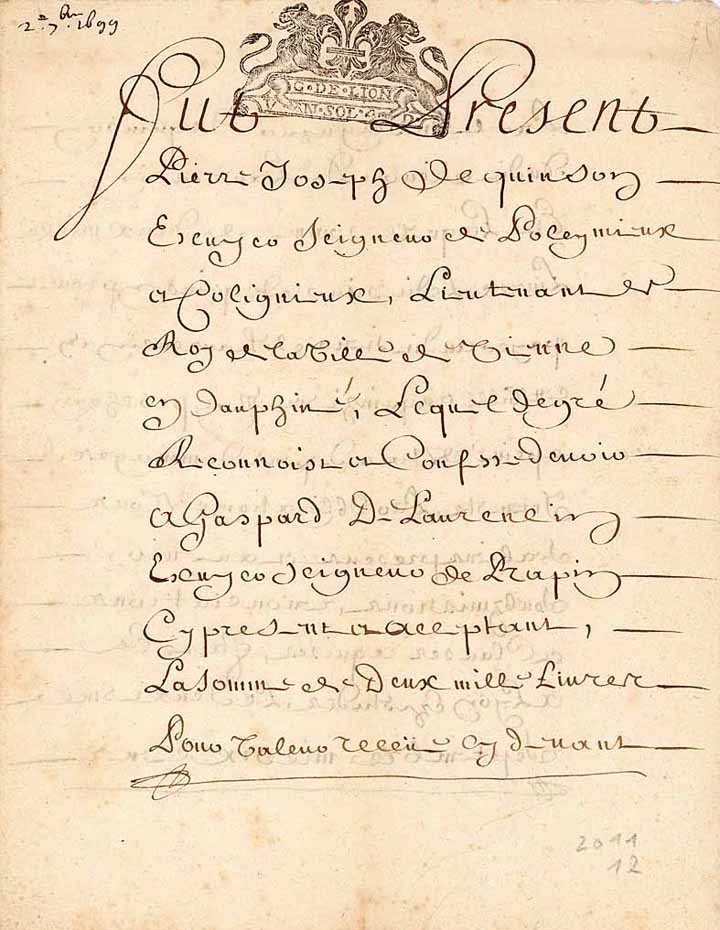 2.e 7.bre 1699
G·DE·LION
V·AN·SOL·4·D
Fut Present
Pierre Joseph Dequinson
Escuyer Seigneur de Poleymieux
et Colignieux, Lieutenant de
Roy de la Ville de Vienne
en Dauphiné, Lequel de gré
Reconnoist et Confesse devoir
A Gaspard De Laurencin
Escuyer Seigneur de Prapin
Cy present et acceptant,
La somme de Deux mille Livres
Pour Valeur receüe cy devant
2011
12